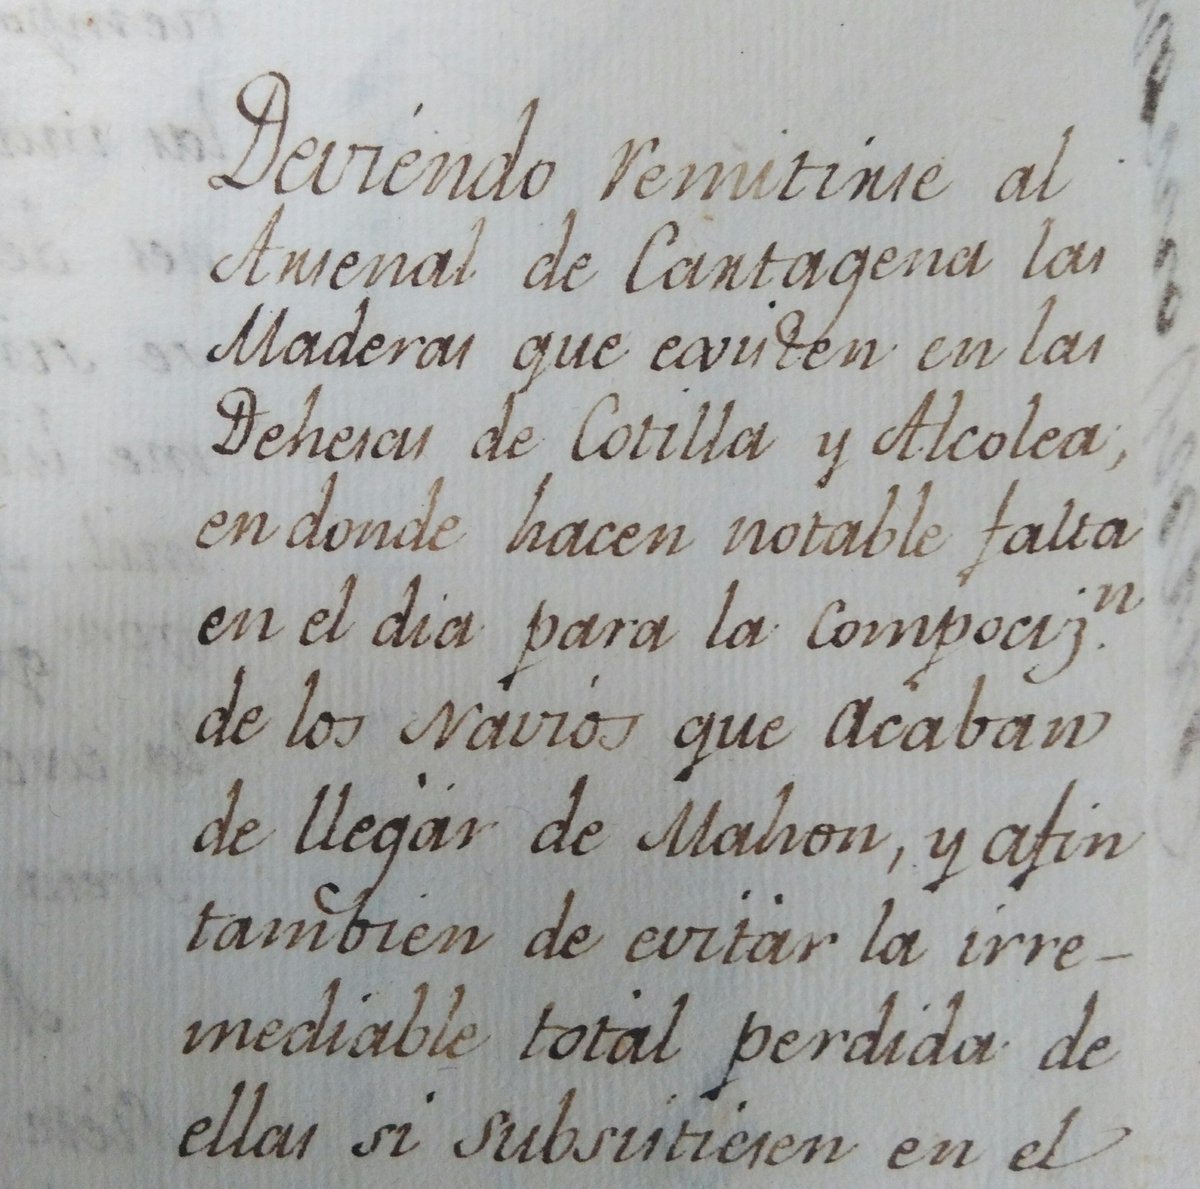 Deviendo remitirse al
Arsenal de Cartagena las
Maderas que existen en las
Dehesas de Cotilla y Alcolea,
en donde hacen notable falta
en el dia para la compocij.n
de los Navios que acaban
de llegar de Mahon, y afin
tambien de evitar la irre-
mediable total perdida de
ellas si subsistiesen en el